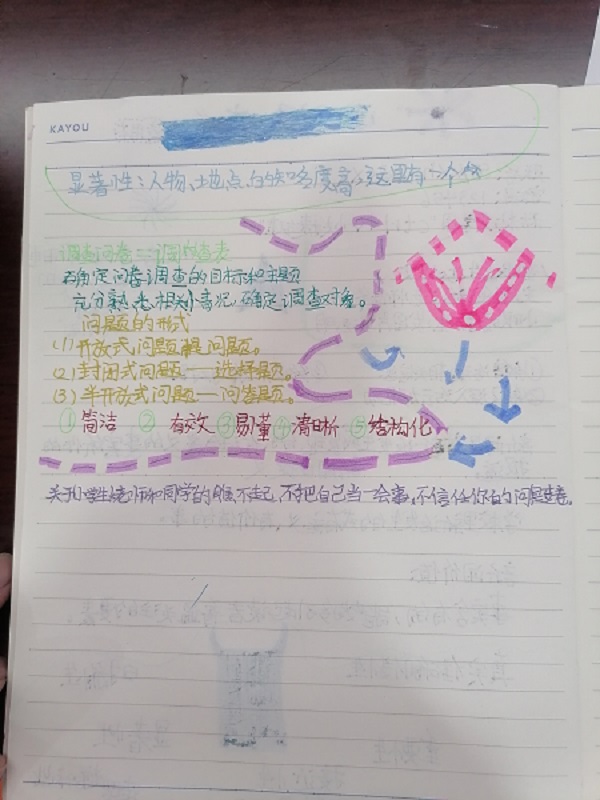 KAYOU
显著性：人物、土地点的知名度高，这里有一个
调查问卷二调查表
确定问卷调查的目标和主题
充分熟悉相关情况，确定调查对象。
问题的形式
(1) 开放式问题 问题。
(2) 封闭式问题——选择题。
(3) 半开放式问题—问答题。
① 简洁 ② 有效 ③ 易懂 ④ 清晰 ⑤ 结构化
关于学生老师和同学的 不起，不把自己当一会事，不信任你的问